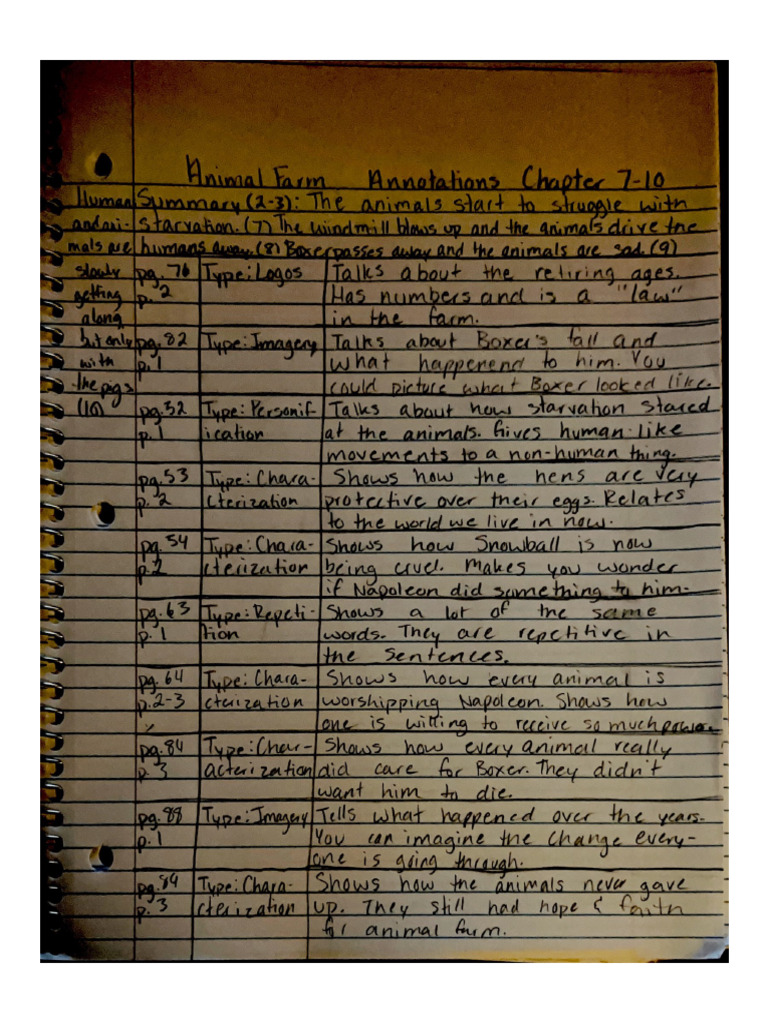 Animal Farm Annotations Chapter 7-10
Summary (2-3): The animals start to struggle with
starvation. (7) The windmill blows up and the animals drive the
humans away. (8) Boxer passes away and the animals are sad. (9)
Human
and ani-
mals are
slowly
getting
along
but only
with
the pigs
(10)
pg. 76 Type: Logos Talks about the retiring ages.
p. 2 Has numbers and is a "law"
in the farm.
pg. 82 Type: Imagery Talks about Boxer's fall and
p. 1 what happenend to him. You
could picture what Boxer looked like.
pg. 52 Type: Personif- Talks about how starvation stared
p. 1 ication at the animals. Gives human-like
movements to a non-human thing.
pg. 53 Type: Chara- Shows how the hens are very
p. 2 cterization protective over their eggs. Relates
to the world we live in now.
pg. 54 Type: Chara- Shows how Snowball is now
p. 2 cterization being cruel. Makes you wonder
if Napoleon did something to him.
pg. 63 Type: Repeti- Shows a lot of the same
p. 1 tion words. They are repetitive in
the sentences.
pg. 64 Type: Chara- Shows how every animal is
p. 2-3 cterization worshipping Napoleon. Shows how
one is willing to receive so much power.
pg. 84 Type: Char- Shows how every animal really
p. 3 acterization did care for Boxer. They didn't
want him to die.
pg. 88 Type: Imagery Tells what happened over the years.
p. 1 You can imagine the change every-
one is going through.
pg. 84 Type: Chara- Shows how the animals never gave
p. 3 cterization up. They still had hope & faith
for animal farm.